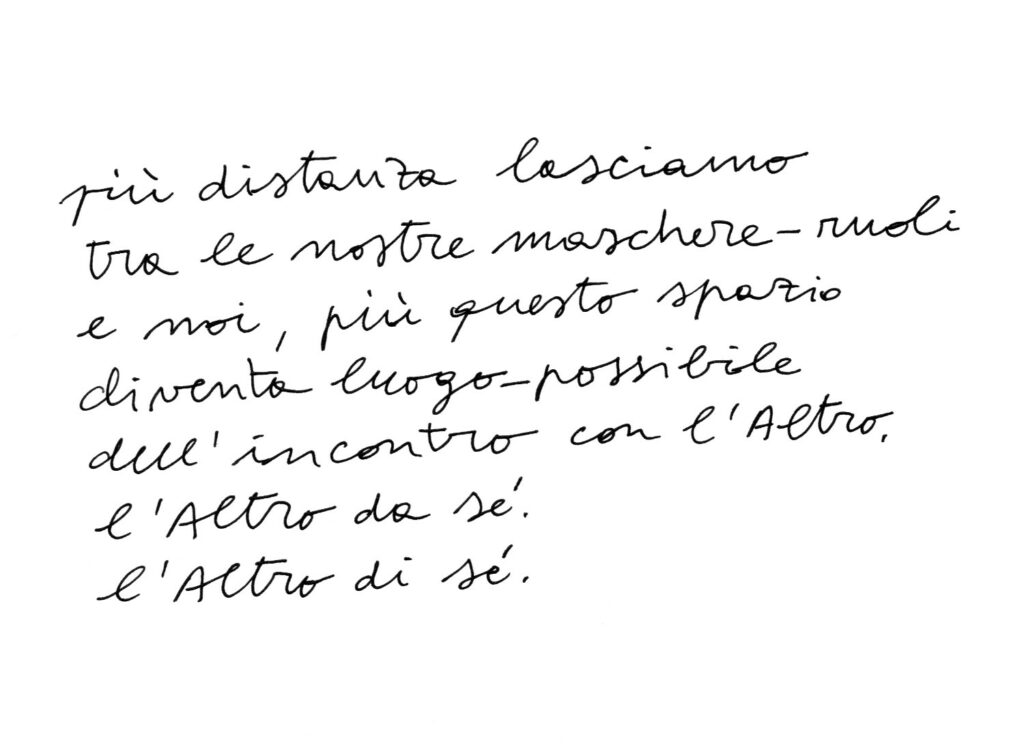 più distanza lasciamo
tra le nostre maschere-ruoli
e noi, più questo spazio
diventa luogo-possibile
dell'incontro con l'Altro.
l'Altro da sé.
l'Altro di sé.